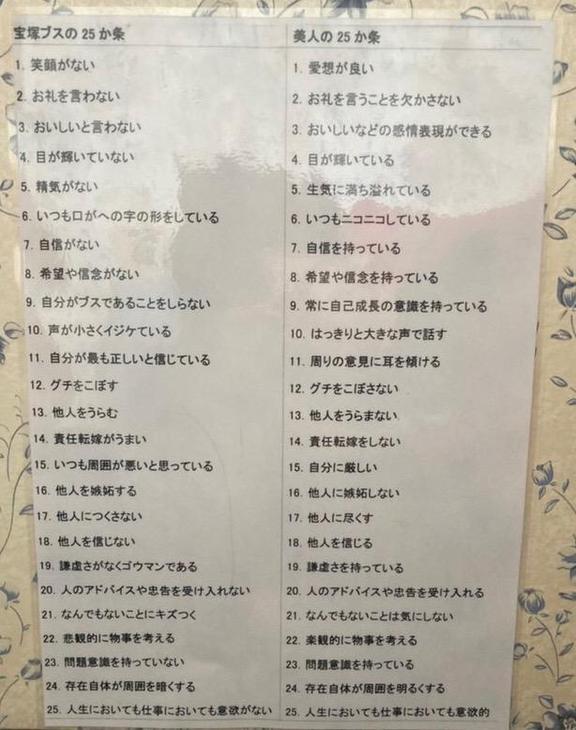 宝塚ブスの25か条
1. 笑顔がない
2. お礼を言わない
3. おいしいと言わない
4. 目が輝いていない
5. 精気がない
6. いつも口がへの字の形をしている
7. 自信がない
8. 希望や信念がない
9. 自分がブスであることをしらない
10. 声が小さくイジケている
11. 自分が最も正しいと信じている
12. グチをこぼす
13. 他人をうらむ
14. 責任転嫁がうまい
15. いつも周囲が悪いと思っている
16. 他人を嫉妬する
17. 他人につくさない
18. 他人を信じない
19. 謙虚さがなくゴウマンである
20. 人のアドバイスや忠告を受け入れない
21. なんでもないことにキズつく
22. 悲観的に物事を考える
23. 問題意識を持っていない
24. 存在自体が周囲を暗くする
25. 人生においても仕事においても意欲がない
美人の25か条
1. 愛想が良い
2. お礼を言うことを欠かさない
3. おいしいなどの感情表現ができる
4. 目が輝いている
5. 生気に満ち溢れている
6. いつもニコニコしている
7. 自信を持っている
8. 希望や信念を持っている
9. 常に自己成長の意識を持っている
10. はっきりと大きな声で話す
11. 周りの意見に耳を傾ける
12. グチをこぼさない
13. 他人をうらまない
14. 責任転嫁をしない
15. 自分に厳しい
16. 他人に嫉妬しない
17. 他人に尽くす
18. 他人を信じる
19. 謙虚さを持っている
20. 人のアドバイスや忠告を受け入れる
21. なんでもないことは気にしない
22. 楽観的に物事を考える
23. 問題意識を持っている
24. 存在自体が周囲を明るくする
25. 人生においても仕事においても意欲的